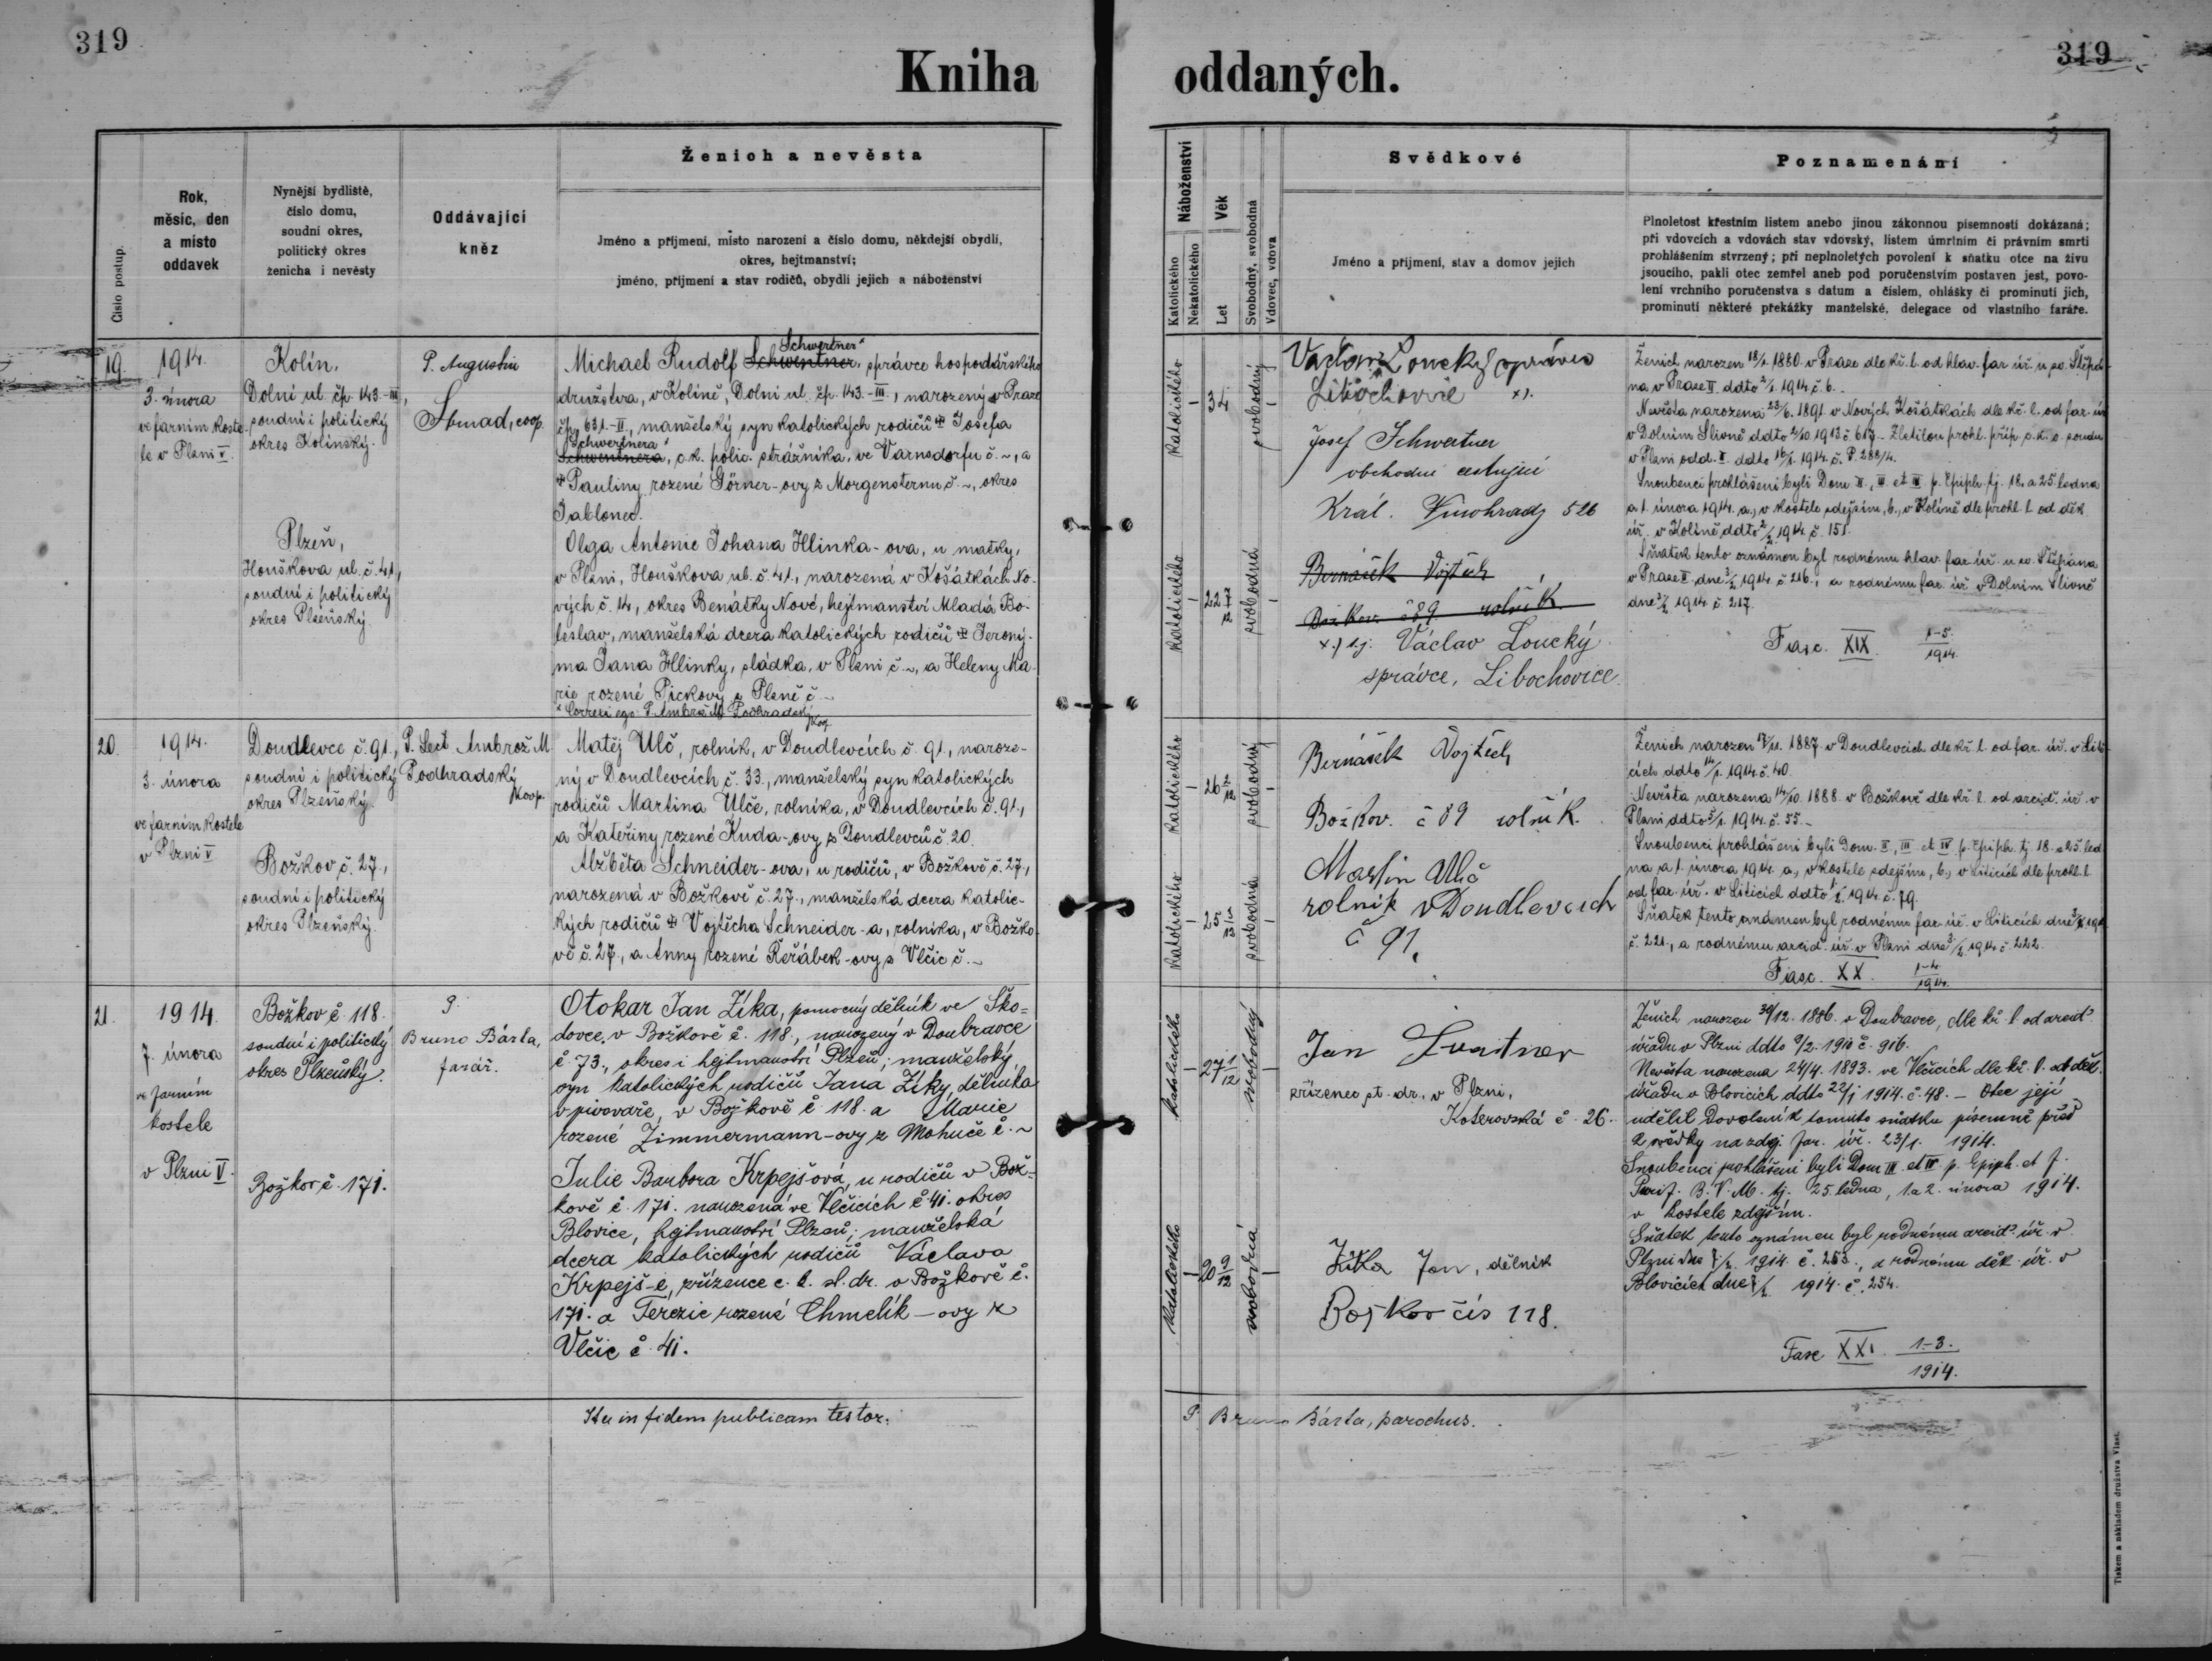 319
319
Kniha oddaných.
Číslo postup.
Rok,
měsíc, den
a místo
oddavek
Nynější bydliště,
číslo domu,
soudní okres,
politický okres
ženicha i nevěsty
Oddávající
kněz
Ženich a nevěsta
Jméno a příjmení, místo narození a číslo domu, někdejší obydlí,
okres, hejtmanství;
jméno, příjmení a stav rodičů, obydlí jejich a náboženství
Náboženství
Katolického
Nekatolického
Věk
Let
Svobodný, svobodná
Vdovec, vdova
Svědkové
Jméno a příjmení, stav a domov jejich
Poznamenání
Plnoletost křestním listem anebo jinou zákonnou písemností dokázaná;
při vdovcích a vdovách stav vdovský, listem úmrtním či právním smrti
prohlášením stvrzený; při neplnoletých povolení k sňatku otce na živu
jsoucího, pakli otec zemřel aneb pod poručenstvím postaven jest, povo-
lení vrchního poručenstva s datum a číslem, ohlášky či prominutí jich,
prominutí některé překážky manželské, delegace od vlastního faráře.
19.
1914.
3. února
ve farním koste-
le v Plzni V.
Kolín,
Dolní ul. čp. 143.-III,
soudní i politický
okres Kolínský.
Plzeň,
Houškova ul. č. 41.,
soudní i politický
okres Plzeňský.
P. Augustin
Strnad, coop.
Schwertner
Michael Rudolf Schwentner, správce hospodářského
družstva, v Kolíně, Dolní ul. čp. 143.-III., narozený v Praze
čp. 631.-II., manželský syn katolických rodičů ✠ Josefa
Schwertnera
Schwentnera, c.k. polic. strážníka, ve Varnsdorfu č. ~, a
✠ Pauliny rozené Görner-ovy z Morgensternu č. ~, okres
Jablonec.
Olga Antonie Johana Hlinka-ova, u matky,
v Plzni, Houškova ul. č. 41., narozená v Košátkách No-
vých č. 14, okres Benátky Nové, hejtmanství Mladá Bo-
leslav, manželská dcera katolických rodičů ✠ Jerony-
ma Jana Hlinky, sládka, v Plzni č. ~, a Heleny Ma-
rie rozené Pickovy z Plzně č. ~
Correxi ego P. Ambrož M. Podhradský Koop.
katolického
-
34
svobodný
-
katolického
-
22 7/12
svobodná
-
Václav Loucký správce
Libochovice x).
Josef Schwertner
obchodní cestující
Král. Vinohrady 526
Bernášek Vojtěch
Božkov. č 89 rolník
x.) t.j. Václav Loucký
správce, Libochovice.
Ženich narozen 18/1. 1880. v Praze dle kř. l. od hlav. far. úř. u sv. Štěpá-
na v Praze II. ddto 2/1. 1914. č. 6.
Nevěsta narozena 23/6. 1891. v Nových Košátkách dle kř. l. od far. úř.
v Dolním Slivně ddto 2/10. 1913 č. 617.- Zletilou prohl. příp. c.k. o. soudu
v Plzni odd. I. ddto 16/1. 1914. č. P. 288/4.
Snoubenci prohlášeni byli Dom. II., III. et IV. p. Epiph. tj. 18. a 25. ledna
a 1. února 1914. a., v kostele zdejším, b., v Kolíně dle prohl. l. od děk.
úř. v Kolíně ddto 2/2. 1914. č. 151.
Sňatek tento oznámen byl rodnému hlav. far. úř. u sv. Štěpána
v Praze II. dne 3/2. 1914. č. 216., a rodnému far. úř. v Dolním Slivně
dne 3/2. 1914. č. 217.
Fasc. XIX. 1-5. 1914.
20.
1914.
3. února
ve farním kostele
v Plzni V
Doudlevce č. 91.,
soudní i politický
okres Plzeňský.
Božkov č. 27.,
soudní i politický
okres Plzeňský.
P. Lect. Ambrož M
Podhradský
Koop.
Matěj Ulč, rolník, v Doudlevcích č. 91., naroze-
ný v Doudlevcích č. 33., manželský syn katolických
rodičů Martina Ulče, rolníka, v Doudlevcích č. 91.,
a Kateřiny rozené Kuda-ovy z Doudlevců č. 20.
Alžběta Schneider-ova, u rodičů, v Božkově č. 27.,
narozená v Božkově č. 27., manželská dcera katolic-
kých rodičů ✠ Vojtěcha Schneider-a, rolníka, v Božko-
vě č. 27., a Anny rozené Řeřábek-ovy z Vlčic č. ~
katolického
-
26 2/12
svobodný
-
katolického
-
25
svobodná
-
Bernášek Vojtěch
Božkov. č 89 rolník.
Martin Ulč
rolník v Doudlevcích
č 91.
Ženich narozen 17/11. 1887. v Doudlevcích dle kř. l. od far. úř. v Liti-
cích ddto 14/1. 1914. č. 40.
Nevěsta narozena 14/10. 1888. v Božkově dle kř. l. od arcid. úř. v
Plzni ddto 5/1. 1914. č. 55.-
Snoubenci prohlášeni byli Dom. II., III. et IV. p. Epiph. tj. 18. a 25. led-
na a 1. února 1914. a., v kostele zdejším, b., v Liticích dle prohl. l.
od far. úř. v Liticích ddto 1/2. 1914. č. 79.
Sňatek tento oznámen byl rodnému far. úř. v Liticích dne 3/2. 1914
č. 221., a rodnému arcid. úř. v Plzni dne 3/2. 1914. č. 222.
Fasc. XX. 1-4. 1914.
21.
1914.
7. února
ve farním
kostele
v Plzni V.
Božkov č. 118.
soudní i politický
okres Plzeňský.
Božkov č. 171.
P.
Bruno Bárta,
farář.
Otokar Jan Zíka, pomocný dělník ve Ško-
dovce, v Božkově č. 118., narozený v Doubravce
č. 73., okres i hejtmanství Plzeň; manželský
syn katolických rodičů Jana Zíky, dělníka
v pivovaře, v Božkově č. 118. a Marie
rozené Zimmermann-ovy z Mohuče č. ~
Julie Barbora Krpejšová, u rodičů v Bož-
kově č. 171. narozená ve Vlčicích č. 41. okres
Blovice, hejtmanství Plzeň; manželská
dcera katolických rodičů Václava
Krpejš-e, zřízence c. k. st. dr. v Božkově č.
171. a Terezie rozené Chmelík-ovy z
Vlčic č. 41.
katolického
-
27 1/12
svobodný
-
katolického
-
20 9/12
svobodná
-
Jan
zřízenec st. dr., v Plzni,
Koterovská č. 26.
Zíka Jan, dělník
Božkov čís 118.
Ženich narozen 30/12. 1886. v Doubravce, dle kř. l. od arcid.
úřadu v Plzni ddto 9/2. 1910 č. 916.
Nevěsta narozena 24/4. 1893. ve Vlčicích dle kř. l. od děk.
úřadu v Blovicích ddto 22/1 1914. č. 48. - Otec její
udělil dovolení k tomuto sňatku písemně před
2 svědky na zdej. far. úř. 23/1. 1914.
Snoubenci prohlášeni byli Dom III. et IV. p. Epiph. et f.
Purif. B. V. M. tj. 25. ledna, 1. a 2. února 1914.
v kostele zdejším.
Sňatek tento oznámen byl rodnému arcid. úř. v
Plzni dne 7/2. 1914. č. 253., a rodnému děk. úř. v
Blovicích dne 7/2. 1914. č. 254.
Fasc XXI. 1-3. 1914.
Ita in fidem publicam testor. P. Bruno Bárta, parochus.
Tiskem a nákladem družstva Vlast.